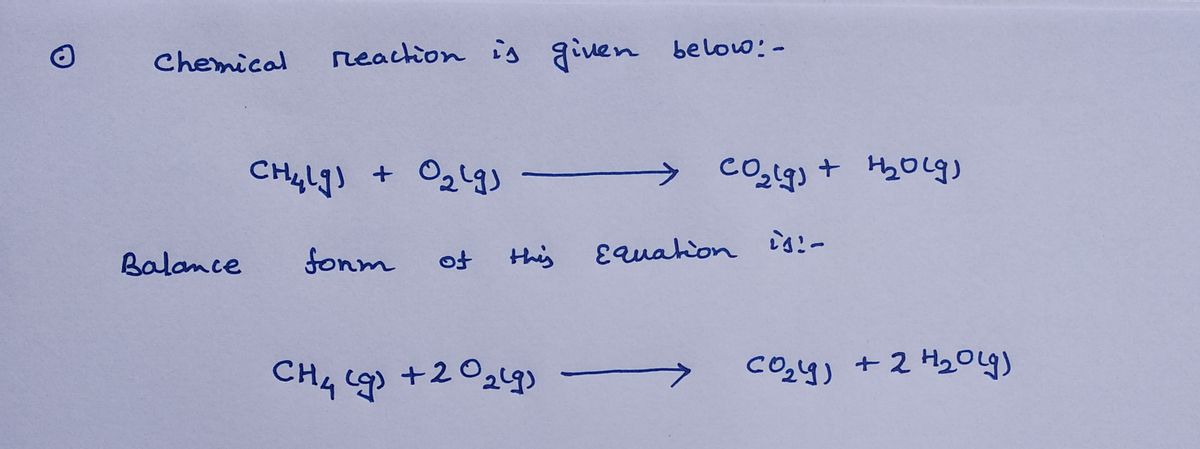 ⊙ Chemical reaction is given below:-
CH₄(g) + O₂(g) ⟶ CO₂(g) + H₂O(g)
Balance form of this Equation is:-
CH₄(g) + 2 O₂(g) ⟶ CO₂(g) + 2 H₂O(g)